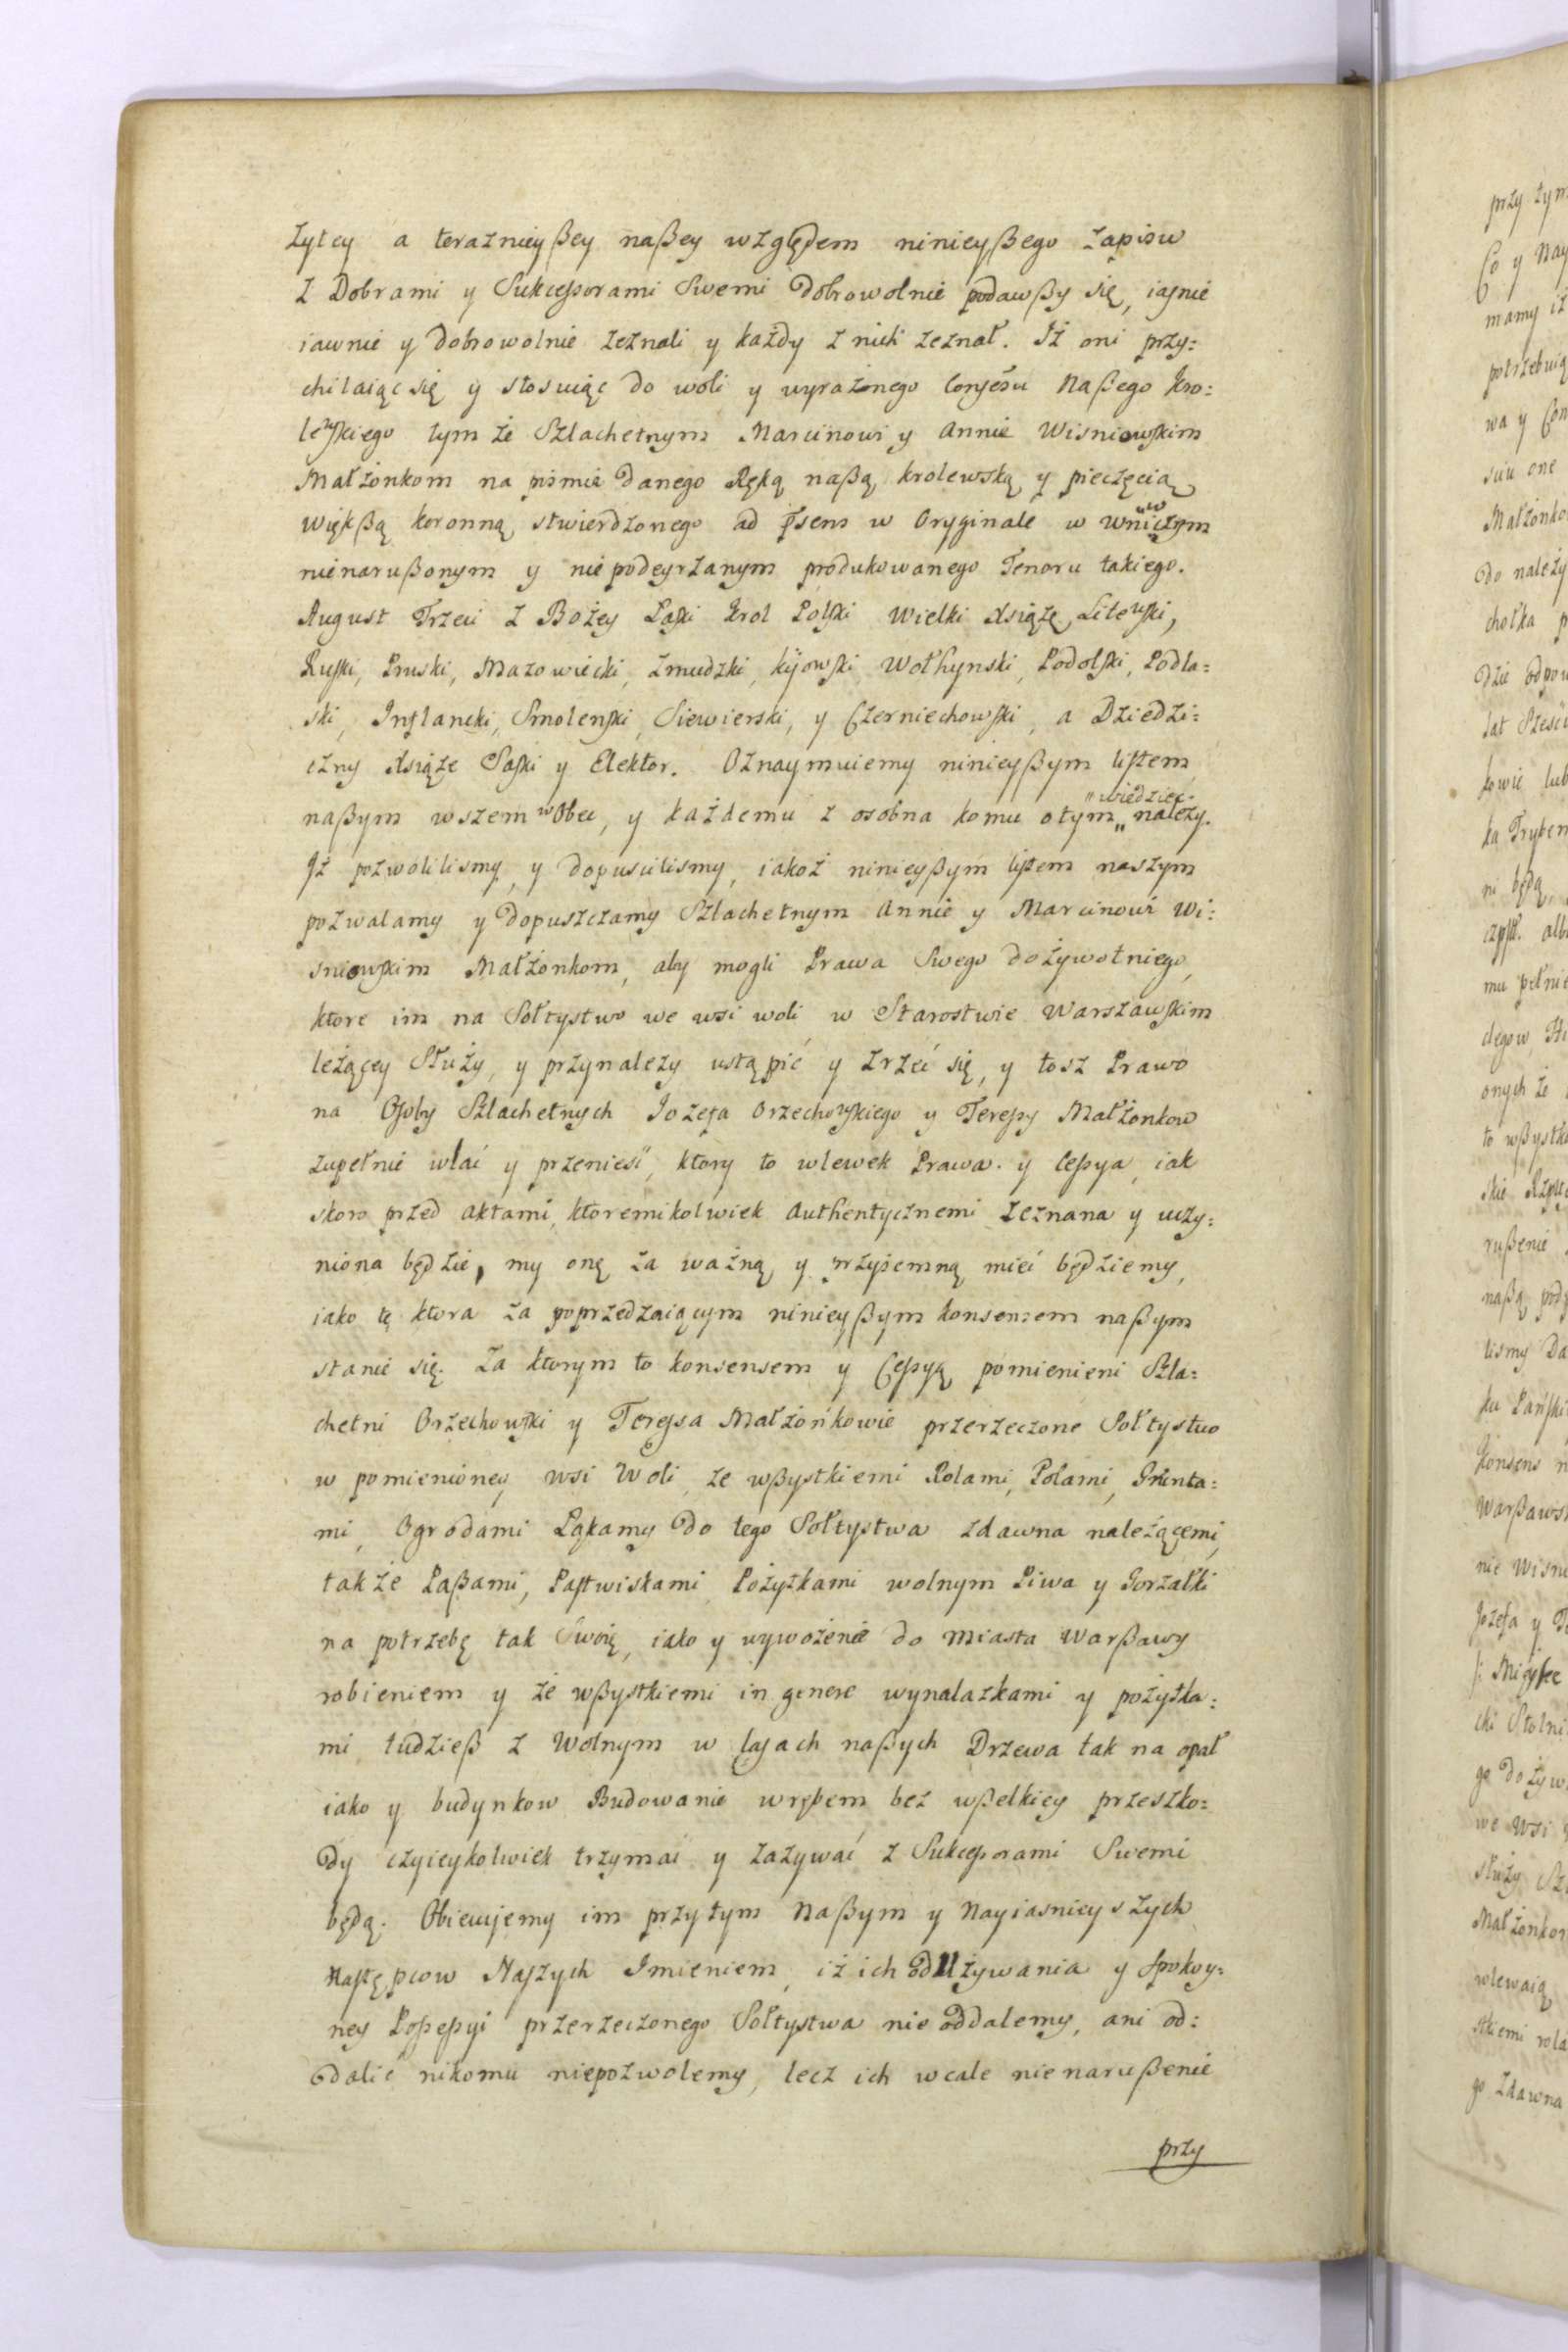 zytey a teraznieyßey naßey względem ninieyßego zapisu
z Dobrami y Sukcessorami Swemi Dobrowolnie podawßy się, iasnie
iawnie y dobrowolnie zeznali y każdy z nich zeznał. Iż oni przy=
chilaiąc się y stosuiąc do woli y wyrażonego Consesu Naßego Kro=
lewskiego tym że Szlachetnym Marcinowi y Annie Wisniowskim
Małżonkom na pismie danego Ręką naßą krolewską y pieczęcią
więkßą koronną stwierdzonego ad psens w Oryginale w wniczym
nienarußonym y niepodeyrzanym produkowanego Tenoru takiego.
August Trzeci z Bożey Łaski Krol Polski Wielki Xsiąże Litewski,
Ruski, Pruski, Mazowiecki, Zmudzki, Kijowski, Wołhynski, Podolski, Podla=
ski, Inflancki, Smolenski, Siewierski, y Czerniechowski, a Dziedzi=
czny Xsiąże Saski y Elektor. Oznaymuiemy ninieyßym listem
naßym wszem w Obec, y każdemu z osobna komu otym „wiedziec„ należy.
Iż pozwolilismy, y dopuscilismy, iakoż ninieyßym listem naszym
pozwalamy y dopuszczamy Szlachetnym Annie y Marcinowi Wi=
sniowskim Małżonkom, aby mogli Prawa Swego dożywotniego,
ktore im na Sołtystwo we wsi woli w Starostwie Warszawskim
leżącey Służy, y przynależy ustąpić y zrzeć się, y tosz Prawo
na Osoby Szlachetnych Jozefa Orzechowskiego y Teressy Małżonkow
zupełnie wlać y przenieść, ktory to wlewek Prawa. y Cessya, iak
skoro przed Aktami, ktoremikolwiek Authentycznemi zeznana y uczy=
niona będzie, my onę za ważną y przyiemną mieć będziemy,
iako tę ktora za poprzedzaiącym ninieyßym konsensem naßym
stanie się. Za ktorym to konsensem y Cessyą pomienieni Szla=
chetni Orzechowski y Teressa Małżonkowie przerzeczone Sołtystwo
w pomienioney wsi Woli, ze wßystkiemi Rolami, Polami, Grunta=
mi, Ogrodami Ląkamy do tego Sołtystwa zdawna należącemi,
także Paßami, Pastwiskami Pożytkami wolnym Piwa y Gorzałki
na potrzebę tak Swoię, iako y wywożenie do miasta Warßawy
robieniem y ze wßystkiemi in genere wynalazkami y pożytka=
mi tudzieß z Wolnym w lasach naßych Drzewa tak na opał
iako y budynkow Budowanie wrębem, bez wßelkiey przeszko=
dy czyieykolwiek trzymać y zażywać z Sukcessorami Swemi
będą. Obiecujemy im przytym Naßym y Nayiasnieyszych
Następcow Naszych Imieniem, iż ich od Używania y Spokoy=
ney Possessyi przerzeczonego Sołtystwa nie oddalemy, ani od=
dalić nikomu niepozwolemy, lecz ich wcale nienarußenie
przy